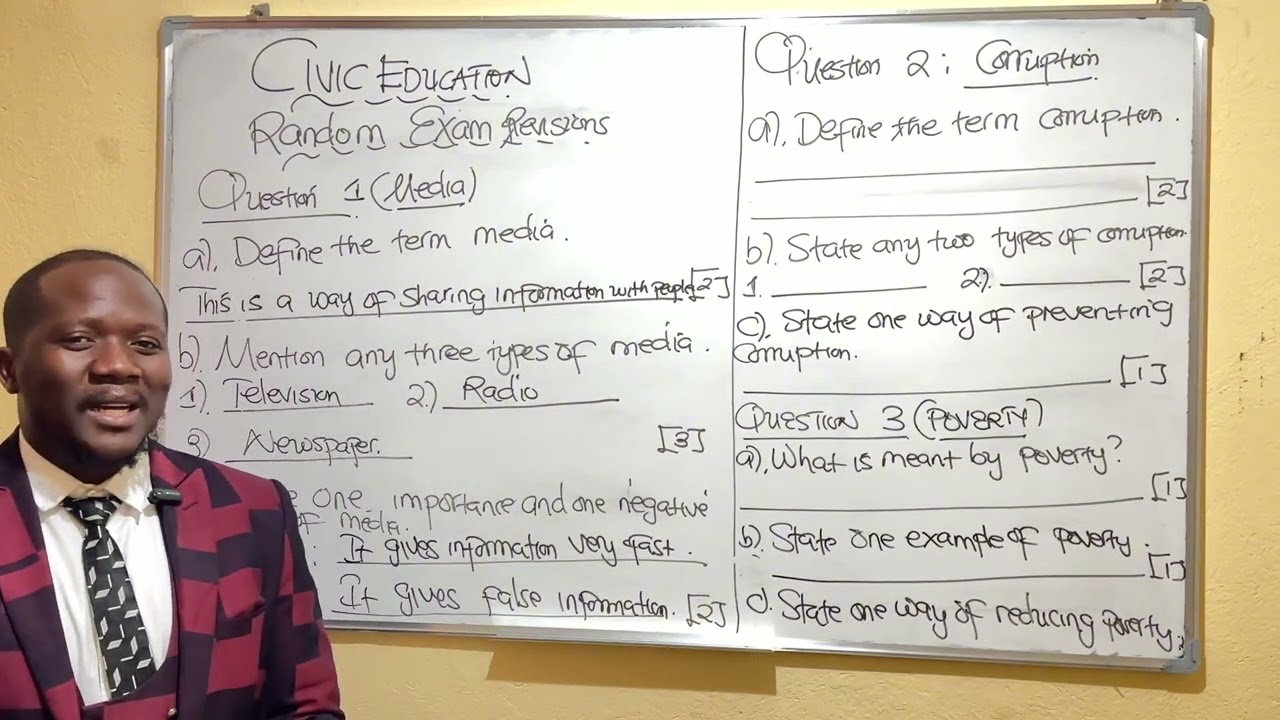 CIVIC EDUCATION
Random Exam Revsions
Question 1 (Media)
a). Define the term media.
This is a way of sharing information with people [2]
b). Mention any three types of media.
1). Television 2.) Radio
3) Newspaper. [3]
one importance and one negative
of media.
: It gives information very fast.
It gives false information. [2]
Question 2: Corruption
a). Define the term corruption.
[2]
b). State any two types of corruption.
1. 2). [2]
c). State one way of preventing
corruption.
[1]
QUESTION 3 (POVERTY)
a). What is meant by poverty?
[1]
b). State one example of poverty.
[1]
c. State one way of reducing poverty.